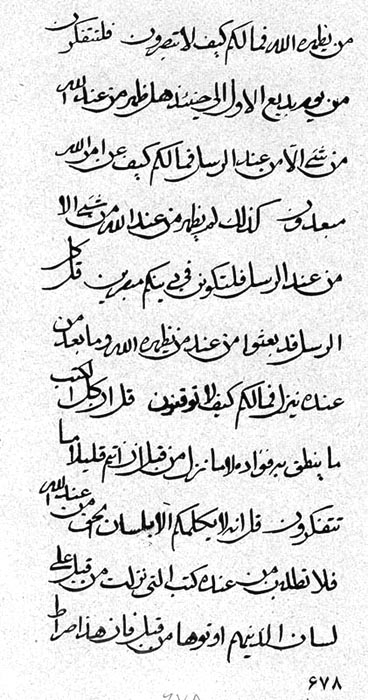 من يظهره الله فما لكم كيف لا تبصرون فلتتفكرون
من يوم بديع الاول الى حينئذ هل ظهر من عند الله
من شئ الا من عند الرسل فما لكم كيف عن امر الله
مبعدون كذلك لم يظهر من عند الله من شئ الا
من عند الرسل فلتكونن في دينكم مبصرين قل كل
الرسل قد بعثوا من عند من يظهره الله وما بعد من
عنده ينزل فما لكم كيف لا توقنون قل ان كل الكتب
ما ينطق به فؤاده لا ما نزل من قبل ان انتم قليلا ما
تتفكرون قل انه لا يكلمكم الا بلسان الحق من عند الله
فلا تطلبن من عنده كتب التي نزلت من قبل على
لسان الذينهم اوتوها من قبل فان هذا صراط
۶۷۸